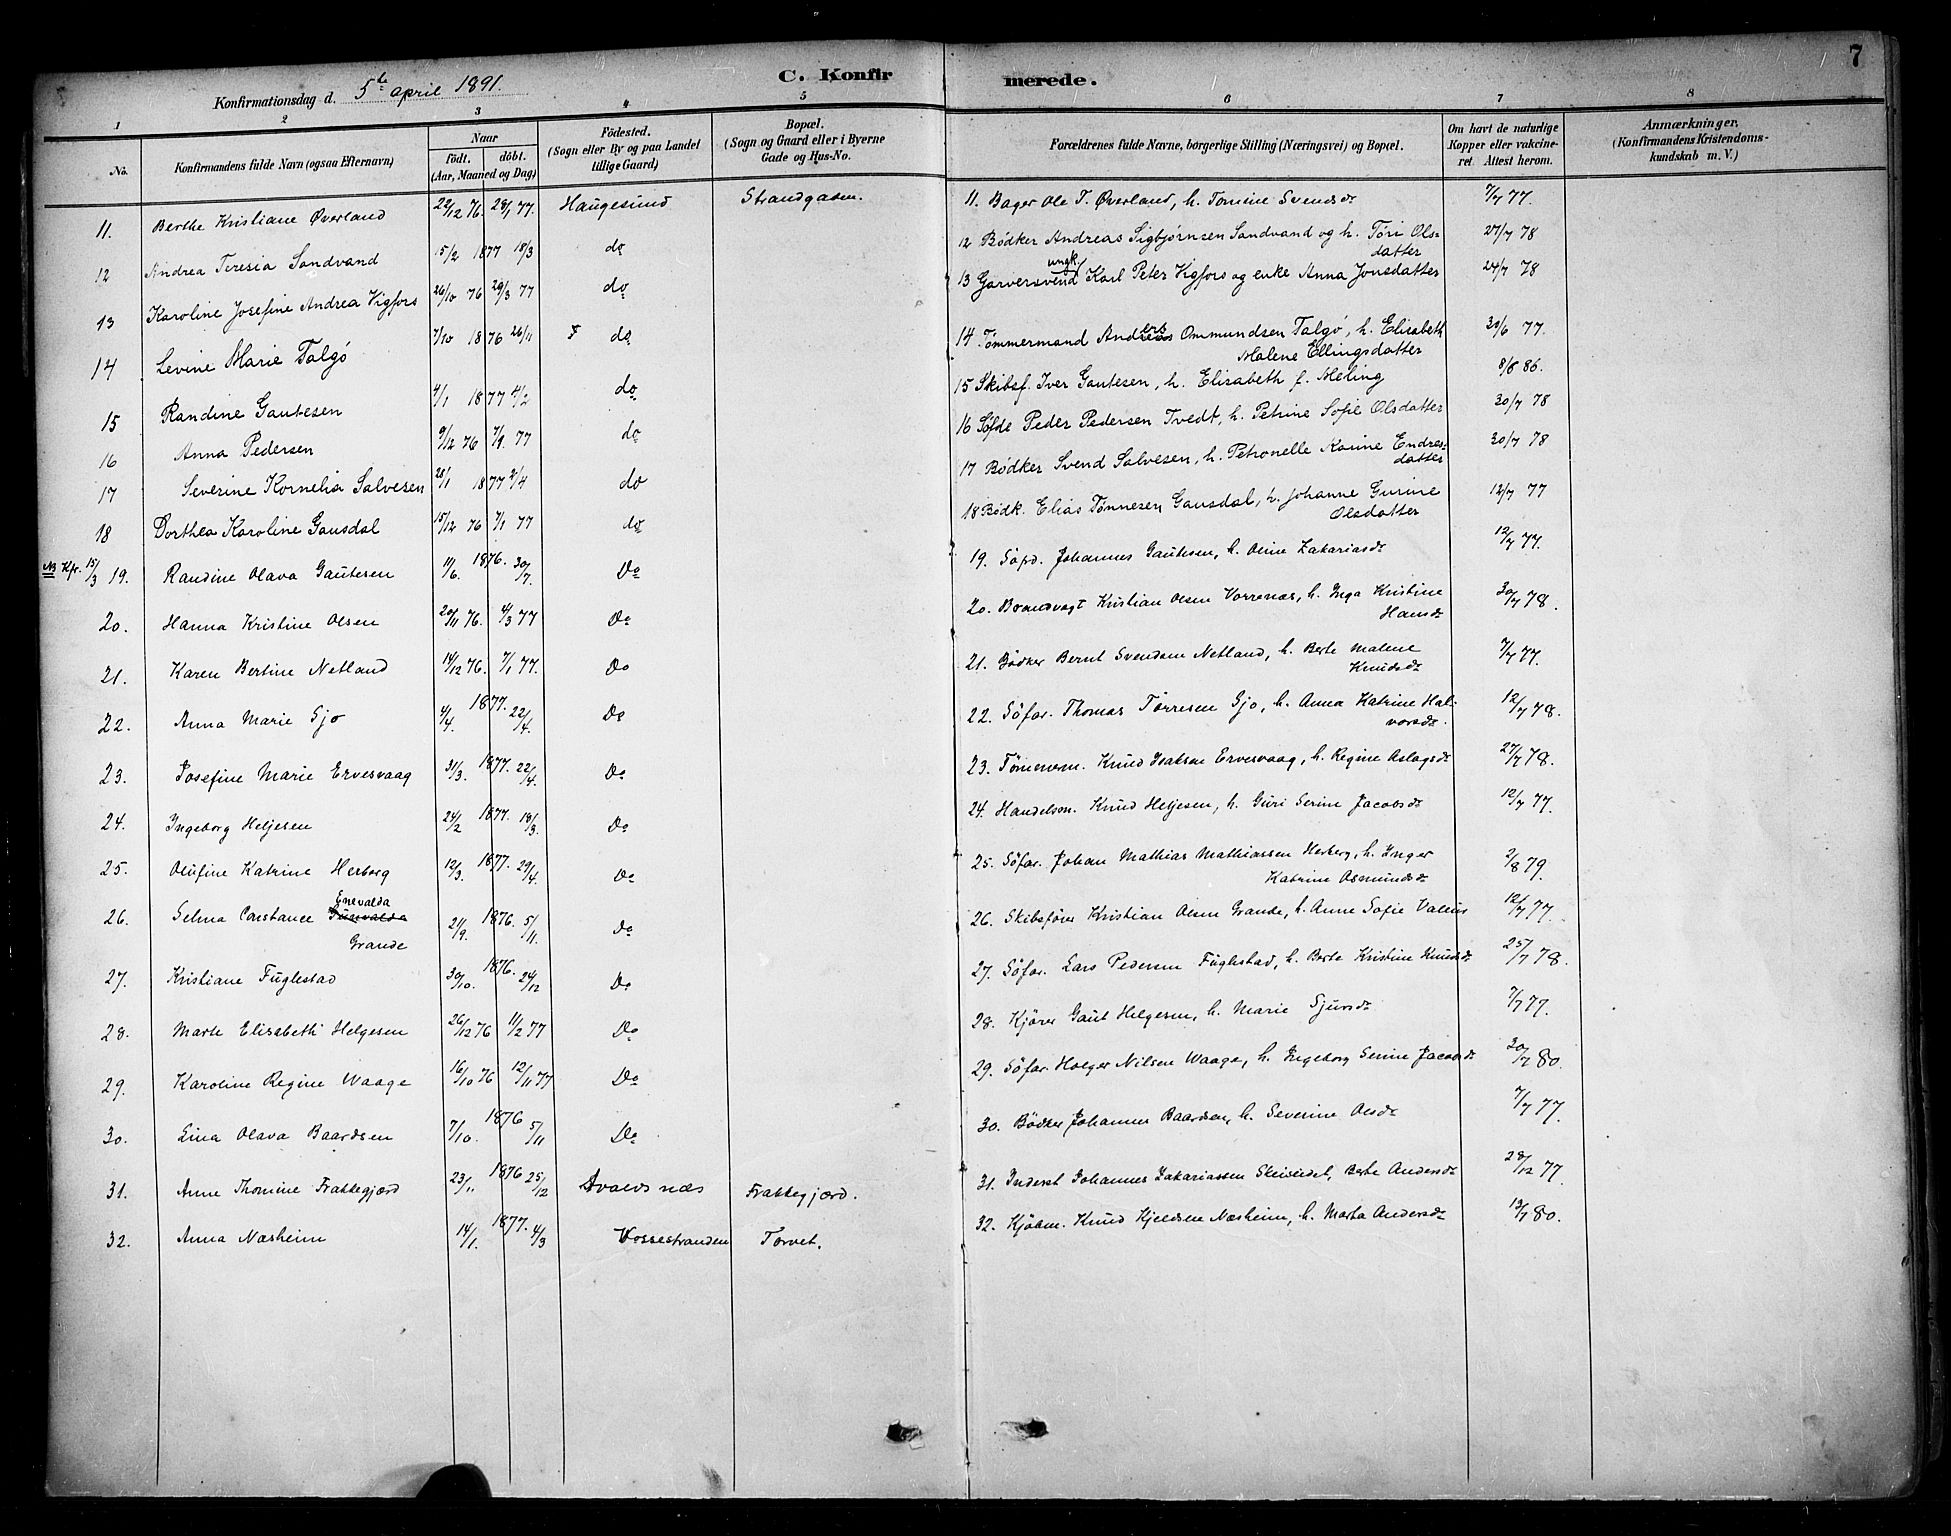 7
C. Konfirmerede.
Konfirmationsdag d. 5te april 1891.
1 2 3 4 5 6 7 8
No. Konfirmandens fulde Navn (ogsaa Efternavn) Naar födt. döbt. (Aar, Maaned og Dag) Födested. (Sogn eller By og paa Landet tillige Gaard) Bopæl. (Sogn og Gaard eller i Byerne Gade og Hus-No. Forældrenes fulde Navne, borgerlige Stilling (Næringsvei) og Bopæl. Om havt de naturlige Kopper eller vakcineret. Attest herom. Anmærkninger. (Konfirmandens Kristendomskundskab m. V.)
11. Berthe Kristiane Øverland 22/12 76. 28/1 77. Haugesund Strandgaten. 11. Bager Ole T. Øverland, h. Tomine Svendsdr 7/7 77.
12 Andrea Teresia Sandvand 15/2 1877 18/3 do 12 Bødker Andreas Sigbjørnsen Sandvand og h. Töri Olsdatter 27/7 78
13 Karoline Josefine Andrea Vigfors 26/10 76 29/3 77 do 13 Garversvend ungk. Karl Peter Vigfors og enke Anna Jonsdatter 24/7 78
14 Levine Marie Talgö 7/10 1876 26/11 do 14 Tømmermand Anders Ommundsen Talgö, h. Elisabeth Malene Ellingsdatter 30/6 77.
15 Randine Gautesen 4/1 1877 4/2 do 15 Skibsf. Iver Gautesen, h. Elisabeth f. Meling 8/8 86.
16 Anna Pedersen 9/12 76 7/9. 77 do 16 Søfde Peder Pedersen Tvedt, h. Petrine Sofie Olsdatter 30/7 78
17 Severine Kornelia Salvesen 28/1 1877 2/4 do 17 Bødker Svend Salvesen, h. Petronelle Karine Endresdatter 30/7 78
18 Dorthea Karoline Gausdal 15/12 76 7/1 77 do 18 Bødk. Elias Tønnesen Gausdal, h. Johanne Gurine Olsdatter 12/7 77
NB Kfr. 15/3 19. Randine Olava Gautesen 11/6. 1876. 30/7. Do 19. Söfd. Johannes Gautesen, h. Oline Zakariasdr 12/7 77.
20. Hanna Kristine Olsen 20/11 76. 4/3 77 Do 20. Brandvagt Kristian Olsen Vorrenæs, h. Inga Kristine Hansdr 30/7 78.
21. Karen Bertine Netland 14/12 76. 7/1 77. Do 21. Bödker Bernt Svendsen Netland, h. Berte Malene Knudsdr 7/7 77.
22. Anna Marie Gjo 4/4. 1877. 22/4. Do 22. Söfar. Thomas Törresen Gjo, h. Anna Katrine Halvorsdr. 12/7 78.
23. Josefine Marie Ervesvaag 31/3. 1877. 22/4. Do 23. Tömerm. Knud Isaksen Ervesvaag, h. Regine Aslagsdr 27/7 78.
24. Ingeborg Heljesen 24/2 1877. 18/3. Do 24. Handelsm. Knud Heljesen, h. Guri Serine Jacobsdr 12/7 77.
25. Olufine Katrine Herborg 12/3. 1877. 29/4. Do 25. Söfar. Johan Mathias Mathiassen Herborg, h. Inger Katrine Osmundsdr 2/8 79
26. Selma Constance Enevalda Grande 21/9. 1876. 5/11. Do 26. Skibsfører Kristian Olsen Grande, h. Anne Sofie Valeur 12/7 77.
27. Kristiane Fuglestad 30/10. 1876. 24/12 Do 27. Söfar. Lars Pedersen Fuglestad, h. Berte Kristine Knudsdr 25/7 78.
28. Marte Elisabeth Helgesen 26/12 76 11/2 77 Do 28. Kjörer Gaut Helgesen, h. Marie Sjursdr 7/7 77.
29. Karoline Regine Waage 16/10 76 12/11 77 Do 29. Söfar. Holger Nilsen Waage, h. Ingeborg Serine Jacobsdr 20/7 80.
30. Lina Olava Baardsen 7/10. 1876 5/11 Do 30. Bödker Johannes Baardsen, h. Severine Olsdr 7/7 77.
31. Anne Thomine Frakkegjærd 23/11 1876 25/12 Avaldsnæs Frakkegjærd. 31. Inderst Johannes Zakariassen Skeiseidet, Berte Andersdr 28/12 77.
32. Anna Næsheim 14/1. 1877. 4/3 Vossestranden Torvet. 32. Kjöbm. Knud Kjeldsen Næsheim, h. Marta Andersdr 13/7 80.